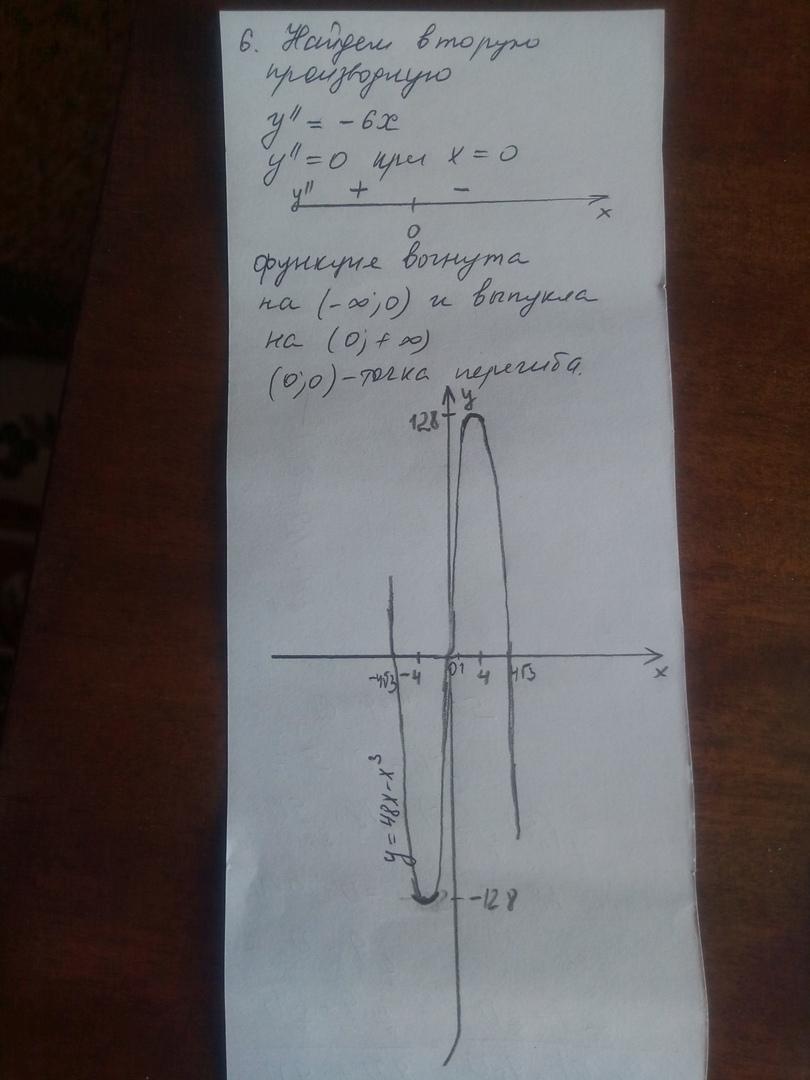 6. Найдем вторую
производную
y'' = -6x
y''=0 при x=0
y'' + -
0 x
функция вогнута
на (-∞;0) и выпукла
на (0;+∞)
(0;0)-точка перегиба.
y
128
-4√3 -4 0 1 4 4√3 x
y=48x-x³
-128